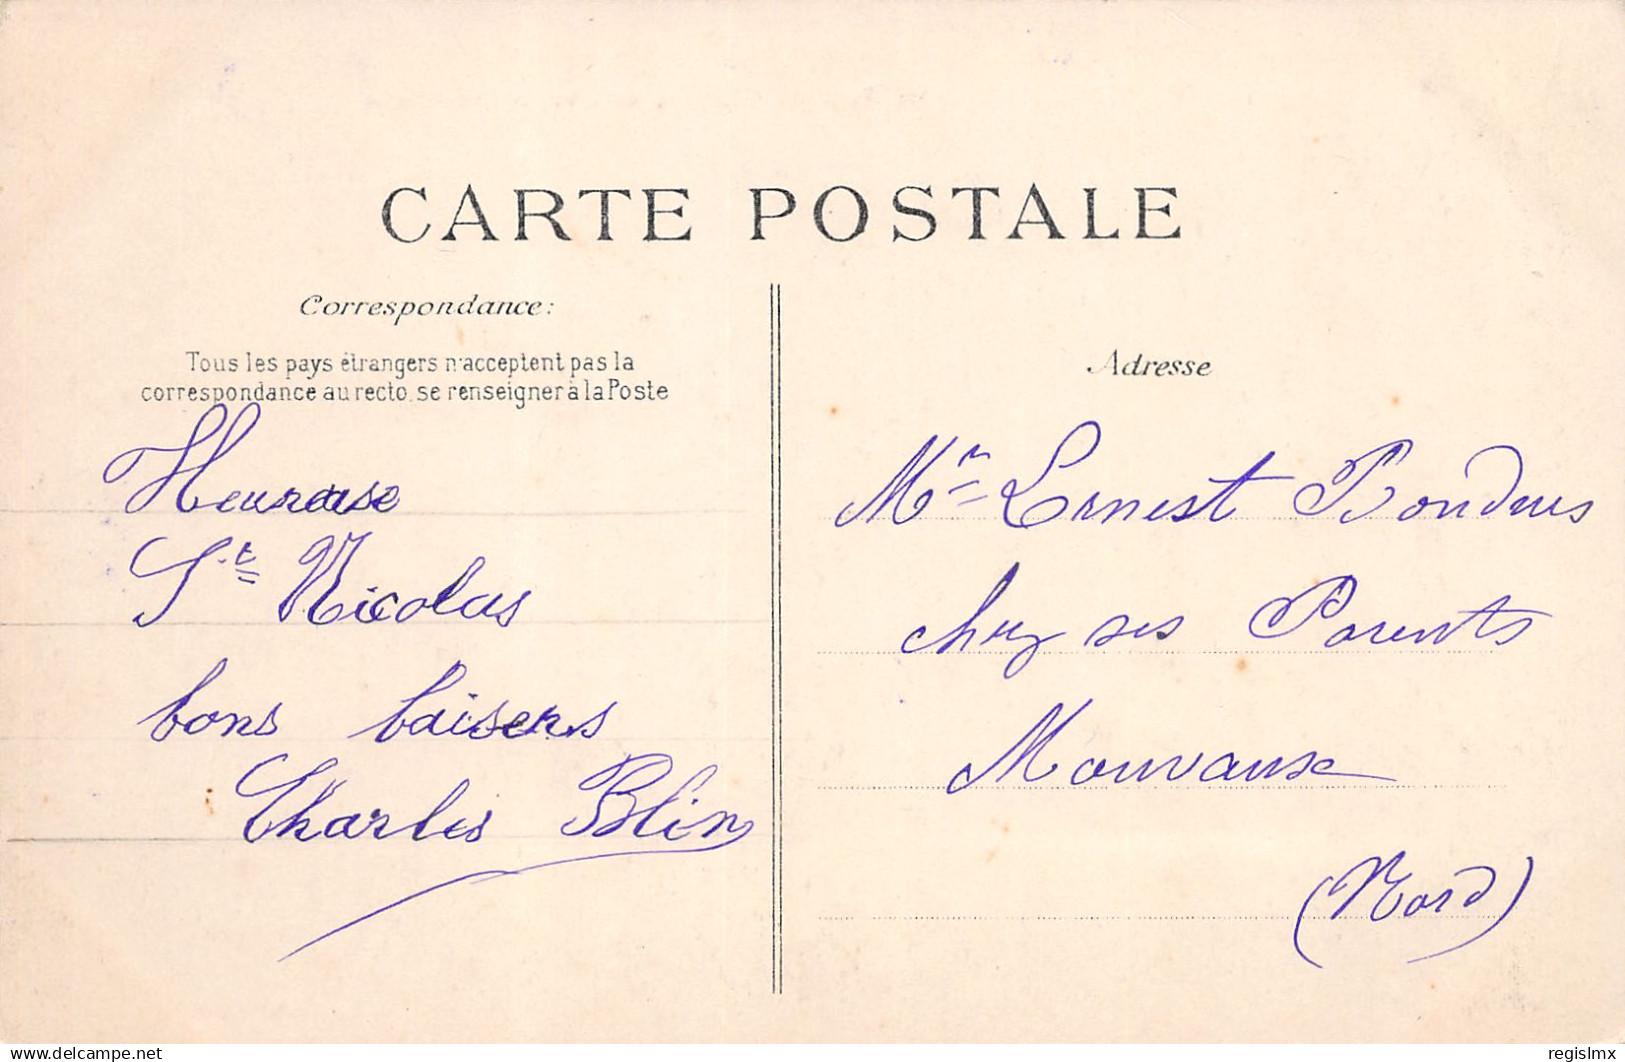 CARTE POSTALE
Correspondance:
Tous les pays étrangers n'acceptent pas la
correspondance au recto, se renseigner à la Poste
Heureuse
St Nicolas
bons baisers
Charles Blin
Adresse
Mr Ernest Bondues
chez ses Parents
Mouvaux
(Nord)
https://www.delcampe.net
regislmx